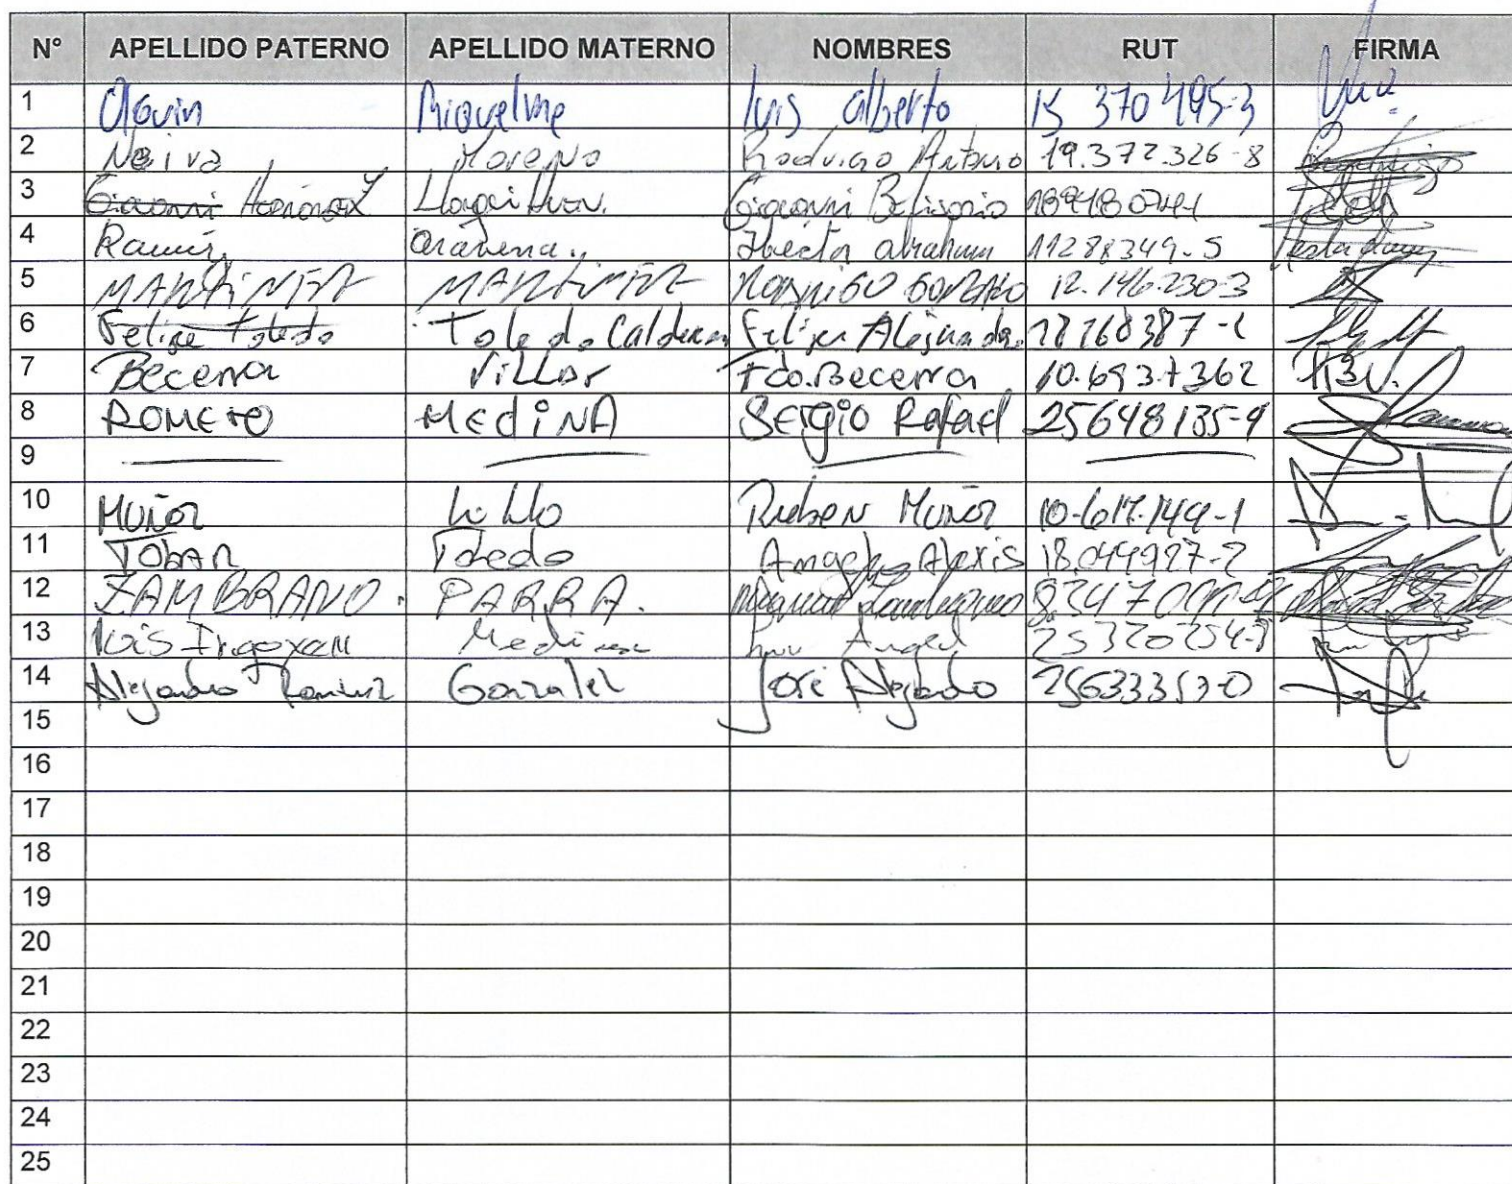 N° APELLIDO PATERNO APELLIDO MATERNO NOMBRES RUT FIRMA
1 Olavin Riquelme luis alberto 15 370 495-3
2 Neiva Moreno Rodrigo Arturo 19.372.326-8
3 Giovanni Giovanni Belisario
4 Ramir Aravena. Hector abraham 11288349-5
5 MARTINEZ MARTINEZ RODRIGO GONZALO 12.146.230-3
6 Felipe Toledo Toledo Calderon Felipe Alejandro
7 Becerra Villar Fdo.Becerra 10.693.7362 F.B.V.
8 ROMERO MEdiNA SErgio Rafael 25648135-9
9
10 Muñoz Lillo Ruben Muñoz 10-617.149-1
11 TObAR Toledo Angelo Alexis 18.044927-2
12 ZAMBRANO. PARRA.
13 Luis Irigoyen Medina Angel
14 Alejandro Ramirez Gonzalez José Alejandro 25633353-0
15
16
17
18
19
20
21
22
23
24
25